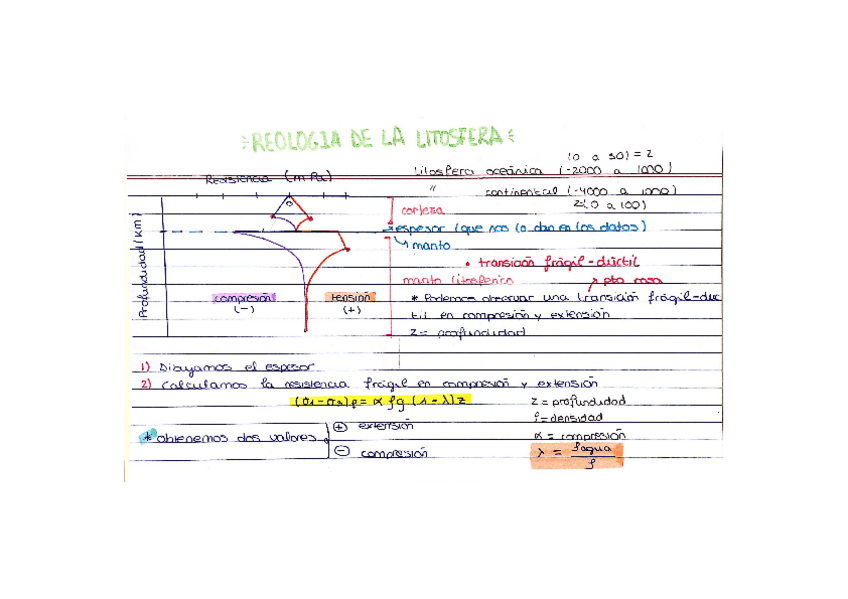 REOLOGIA DE LA LITOSFERA
(0 a 50) = z
Resistencia (mPa)
Litosfera oceánica (-2000 a 1000)
" continental (-4000 a 1000)
z(0 a 100)
0
corteza
espesor (que nos lo dan en los datos)
manto
• transición frágil-dúctil
manto litosferico
pto rosa
Profundidad (km)
compresión
(-)
tensión
(+)
* Podemos observar una transición frágil-duc
til en compresión y extensión
z = profundidad
1) Dibujamos el espesor
2) Calculamos la resistencia frágil en compresión y extensión
(σ1-σ3)f = α ρg (1-λ)z
z = profundidad
ρ = densidad
α = compresión
λ = ρagua / ρ
* obtenemos dos valores
+ extensión
- compresión